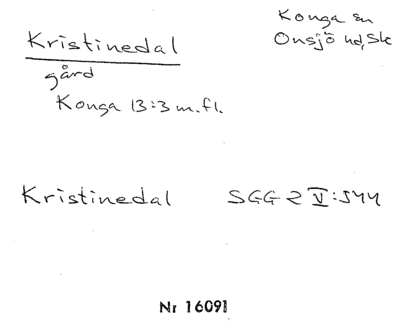 Kristinedal
Konga sn
Onsjö hd, Sk
gård
Konga 13:3 m.fl.
Kristinedal SGG 2 V:544
Nr 16091